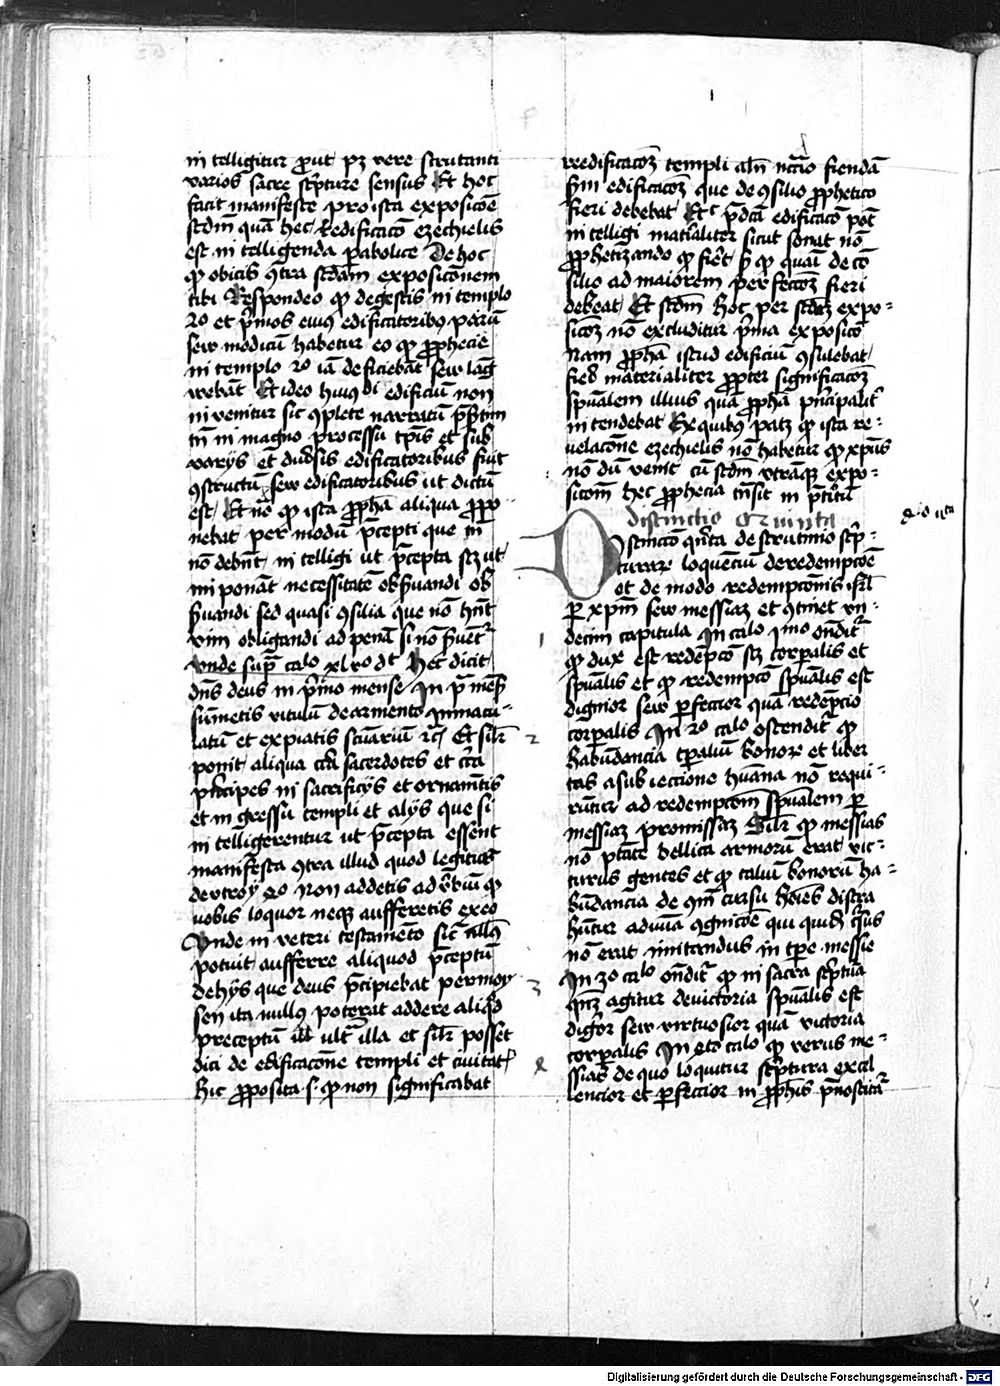 in telligitur prout pz vere scrutanti
varios sacre scripture sensus Et hoc
facit manifeste pro ista exposicõe
scdm quã hec Redificacõ ezechielis
est in telligenda parabolice De hoc
qp obicis contra scdam exposicõnem
tibi Respondeo qp de gestis in templo
2o et primos eius edificatoribus parũ
seu modicũ habetur eo qp prophecie
in templo 2o iã deficiebãt seu lãg
webãt Et ideo huiusdi edificiũ non
in venitur sic complete narratũ presertim
tñ in magno processu tpis et sub
varijs et diversis edificatoribus fuit
constructũ seu edificatoribus ut dictũ
est Et nõ qp ista prophã aliqua propo
nebat per modũ precepti que in
nõ debñt in telligi ut precepta scz ut
im ponãt necessitatẽ observandi ob
servandi sed quasi consilia que nõ hñt
vim obligandi ad penã si nõ servetur
Unde supra calo xlvo dt Hec dicit
dñs deus in primo mense In pa mẽs
sumetis vitulũ de armento inmacu-
latũ et expiatis scuariũ &c Et silr
ponit aliqua circa sacerdotes et circa
principes in sacrificijs et ornamẽtis
et in gressu templi et alijs que si
in telligerentur ut precepta essent
manifesta contra illud quod legitur
deutroij 4o non addetis ad verbũ qp
vobis loquor neque aufferetis ex eo
Unde in veteri testamẽto sic nullus
potuit aufferre aliquod preceptũ
de hijs que deus precipiebat per moy
sen ita nullus poterat addere aliquod
preceptũ ultra illa et silr posset
dici de edificacõne templi et civitatis
hic proposita s. qp non significabat
reedificacõz templi aliter necessario fiendã
sed edificacõz que de consilio prophetico
fieri debebat Etc predcã edificacõ potest
in telligi materialiter sicut sonat nõ
prophetizando qp fiet sed qp quasi de con
silio ad maiorem perfeccõz fieri
debeat Et scdm hoc per scdaz expo-
sicõz nõ excluditur prima exposicõ
nam prophã istud edificiũ consulebat
fieri materialiter propter significacõz
spũalem illius quã prophã principaliter
in tendebat Ex quibus patz qp ista re-
velacõne ezechielis nõ habetur qp xpus
nõ dũ venit cũ scdm utramque expo-
sicõm hec prophecia transit in preteritũ
distinctio quinta
Distinctio quinta de scrutinio scrip-
turarum loquenciũ de redempcõe
et de modo redempcõnis israel
per xpm seu messiaz et continet un-
decim capitula In calo 1mo ondiť
qp dux est redempcõ scz corporalis et
spũalis et qp redempcõ spũalis est
dignior seu perfeccior quã redẽpcio
corporalis In 2o calo ostenditur qp
habundancia temporaliũ bonorum et liber
tas a subieccione humana nõ requi-
runtur ad redempcõem spũalem per
messiaz promissaz Silr qp messias
nõ potestate bellica armorũ erat vic-
turus gentes et qp taliũ bonorũ ha-
bundancia de communi cursu hoies distra
huntur a divina cognicõe qui quidem cursus
nõ erat imitandus in tpe messie
In 3o calo ondiť qp in sacra scriptura
quando agitur de victoria spũalis est
dignior seu virtuosior quã victoria
corporalis In 4to calo qp verus me-
ssias de quo loquitur scriptura excel
lencior et perfeccior in prophetis prenosticatur
1
2
3
4